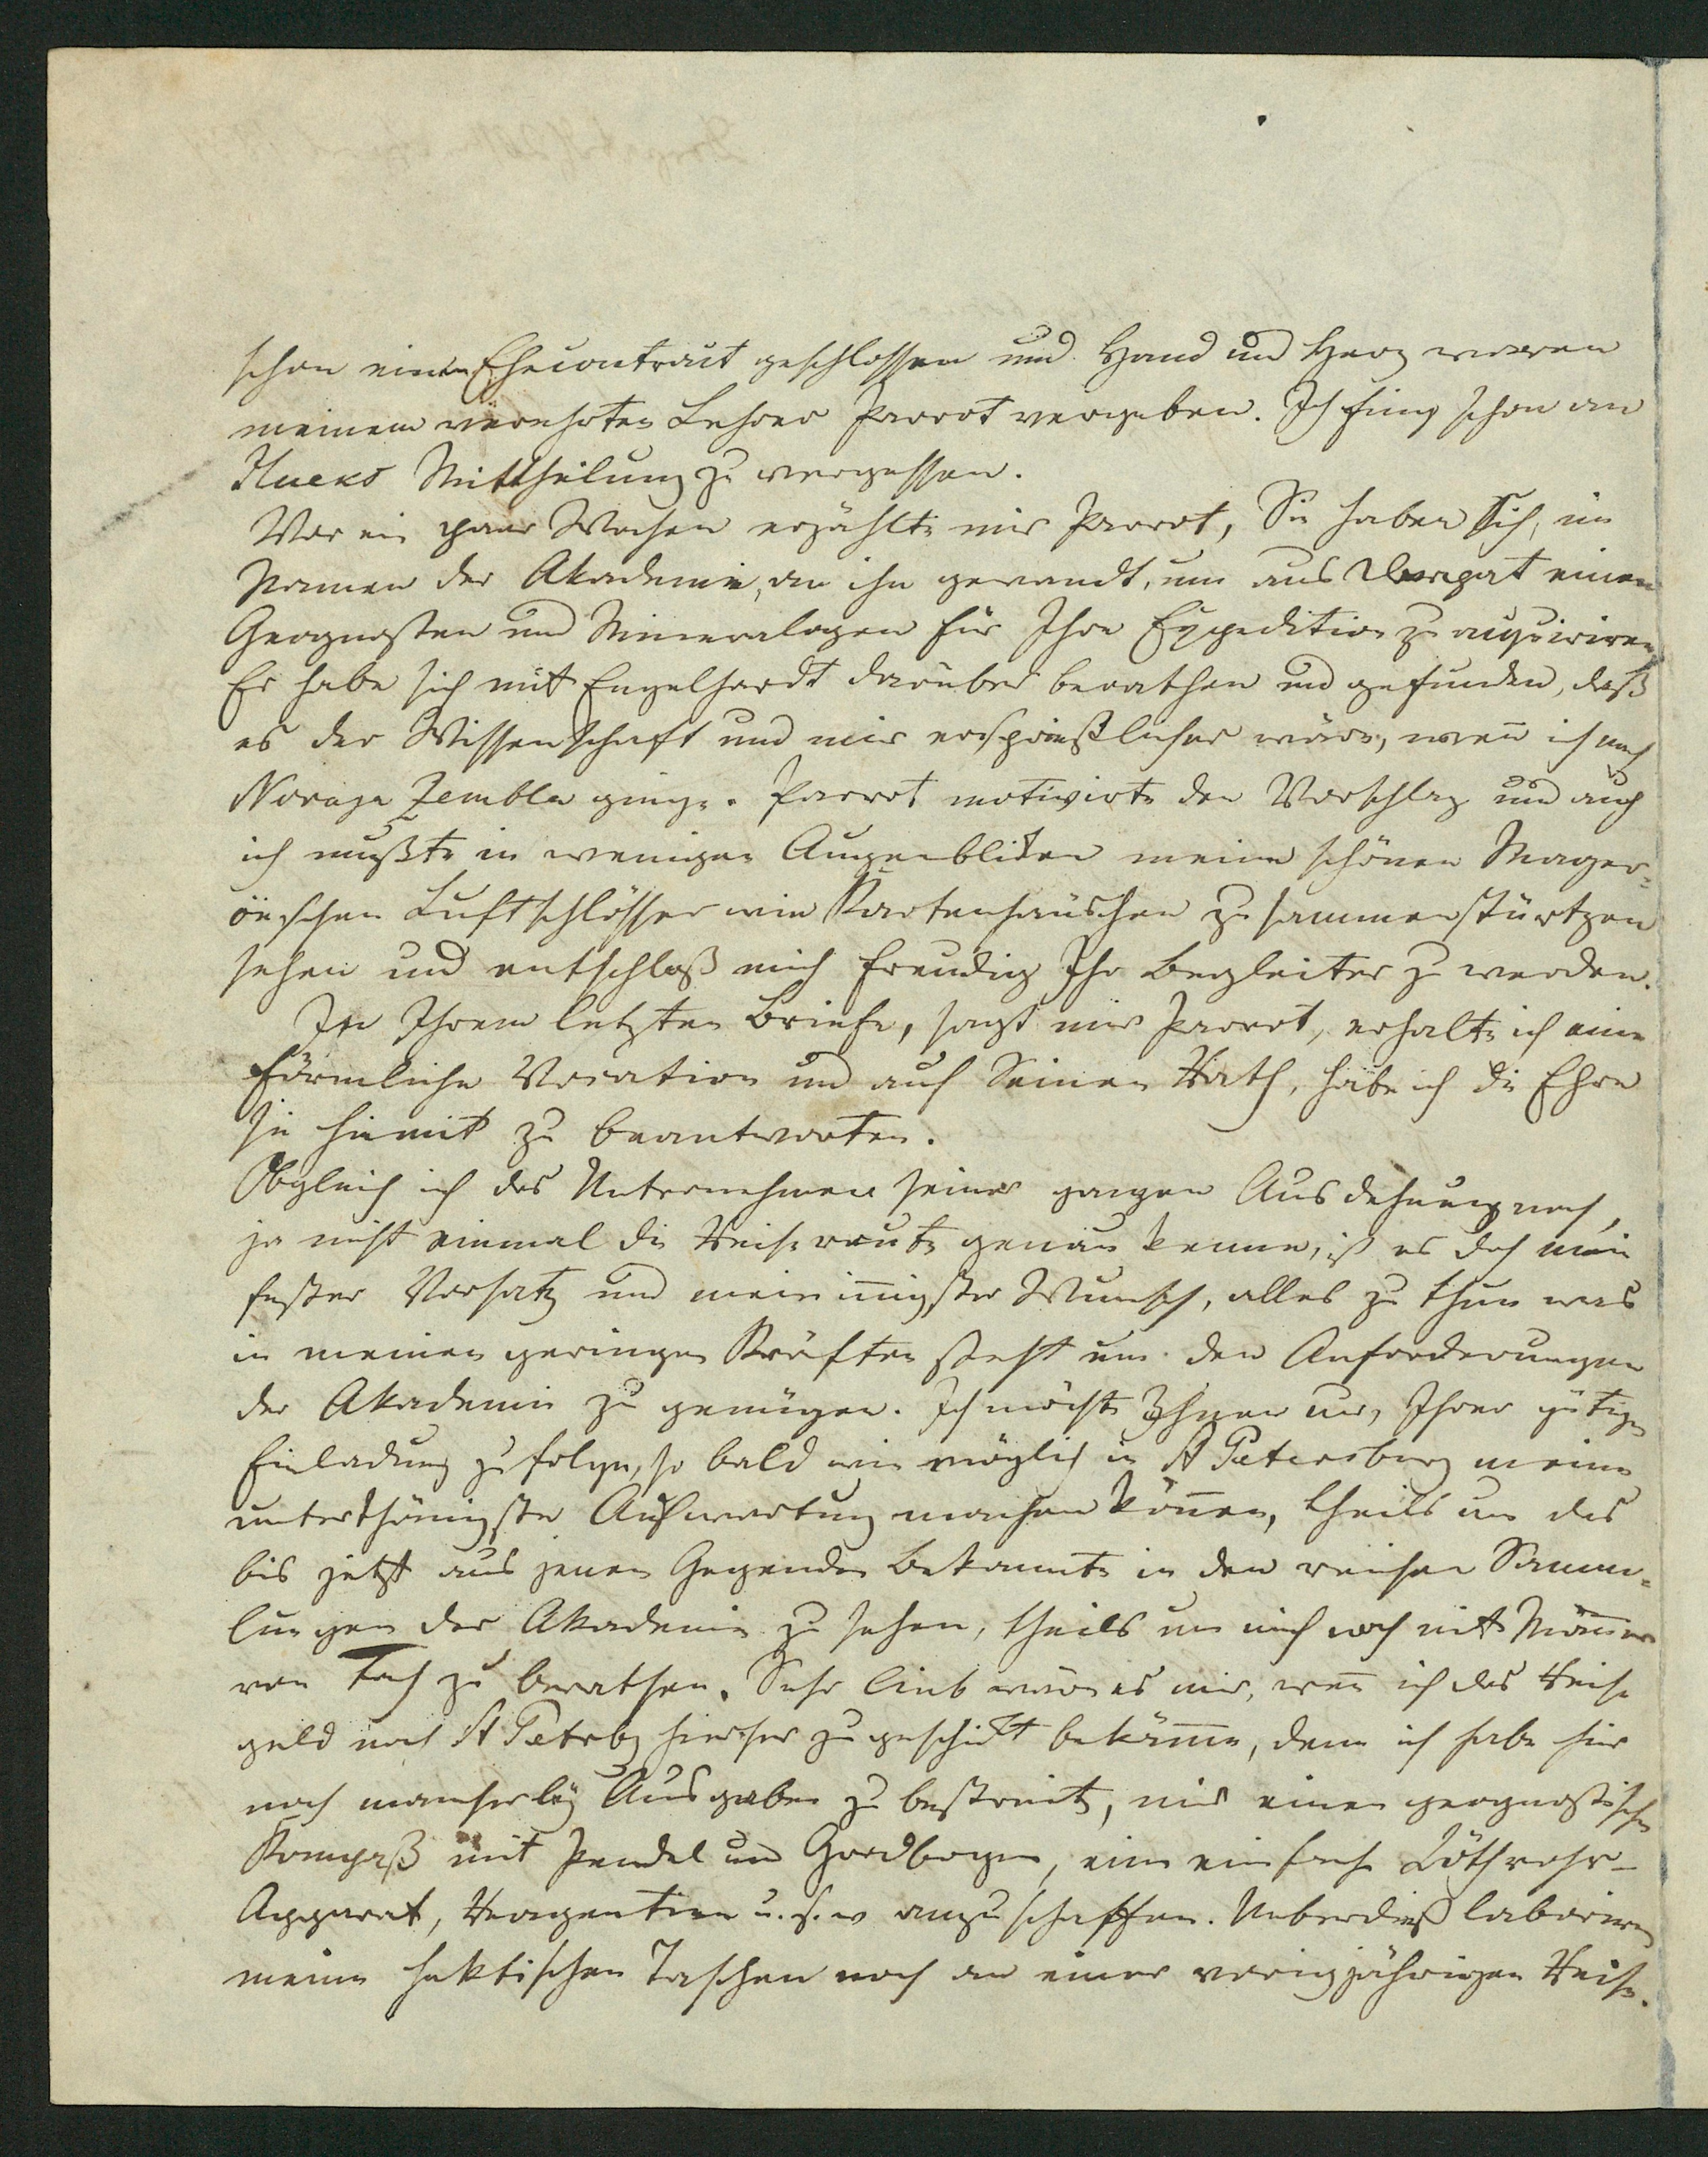 schon einen Ehecontract geschlossen und Hand und Herz waren
meinem verehrten Lehrer Parrot vergeben. Ich fing schon an
Huecks Mittheilung zu vergessen.
Vor ein paar Wochen erzählte mir Parrot, Sie haben sich, im
Namen der Akademie, an ihn gewandt, um aus Dorpat einen
Geognosten und Mineralogen für Ihre Expedition zu acquiriren
Er habe sich mit Engelhardt darüber berathen und gefunden, daß
es der Wissenschaft und mir ersprießlicher wäre, weñ ich nach
Novaja Zembla ginge. Parrot motivirte den Vorschlag und auch
ich mußte in wenigen Augenblicken meine schönen Mager-
öeschen Luftschlösser wie Kartenhäuschen zusammenstürtzen
sehen und entschloß mich freudig Ihr Begleiter zu werden.
In Ihrem letzten Briefe, sagt mir Parrot, erhalte ich eine
förmliche Vocation und auf Seinen Rath, habe ich die Ehre
sie hiemit zu beantworten.
Obgleich ich das Unternehmen seiner ganzen Ausdehnung nach,
ja nicht einmal die Reiseroute genau kenne, ist es doch mein
fester Vorsatz und mein iñigster Wunsch, alles zu thun was
in meinen geringen Kräften steht um den Anforderungen
der Akademie zu genügen. Ich möchte Ihnen nur, Ihrer gütigen
Einladung zufolge, so bald wie möglich in St Petersburg meine
unterthänigste Aufwartung machen köñen, theils um das
bis jetzt aus jenen Gegenden Bekannte in den reichen Samm-
lungen der Akademie zu sehen, theils um mich noch mit Mäñer
von Fach zu berathen. Sehr lieb wäre es mir, weñ ich das Reise
geld nach St Petrbg hierher zugeschickt bekäme, denn ich habe hier
noch mancherley Ausgaben zu bestreiten, mir einen geognostischen
Kompaß mit Pendel und Gradbogen, einen einfachen Löthrohr-
Apparat, Reagentien u. s. w anzuschaffen. Ueberdieß laboriren
meine hektischen Taschen noch an einer vorigjährigen Reise.